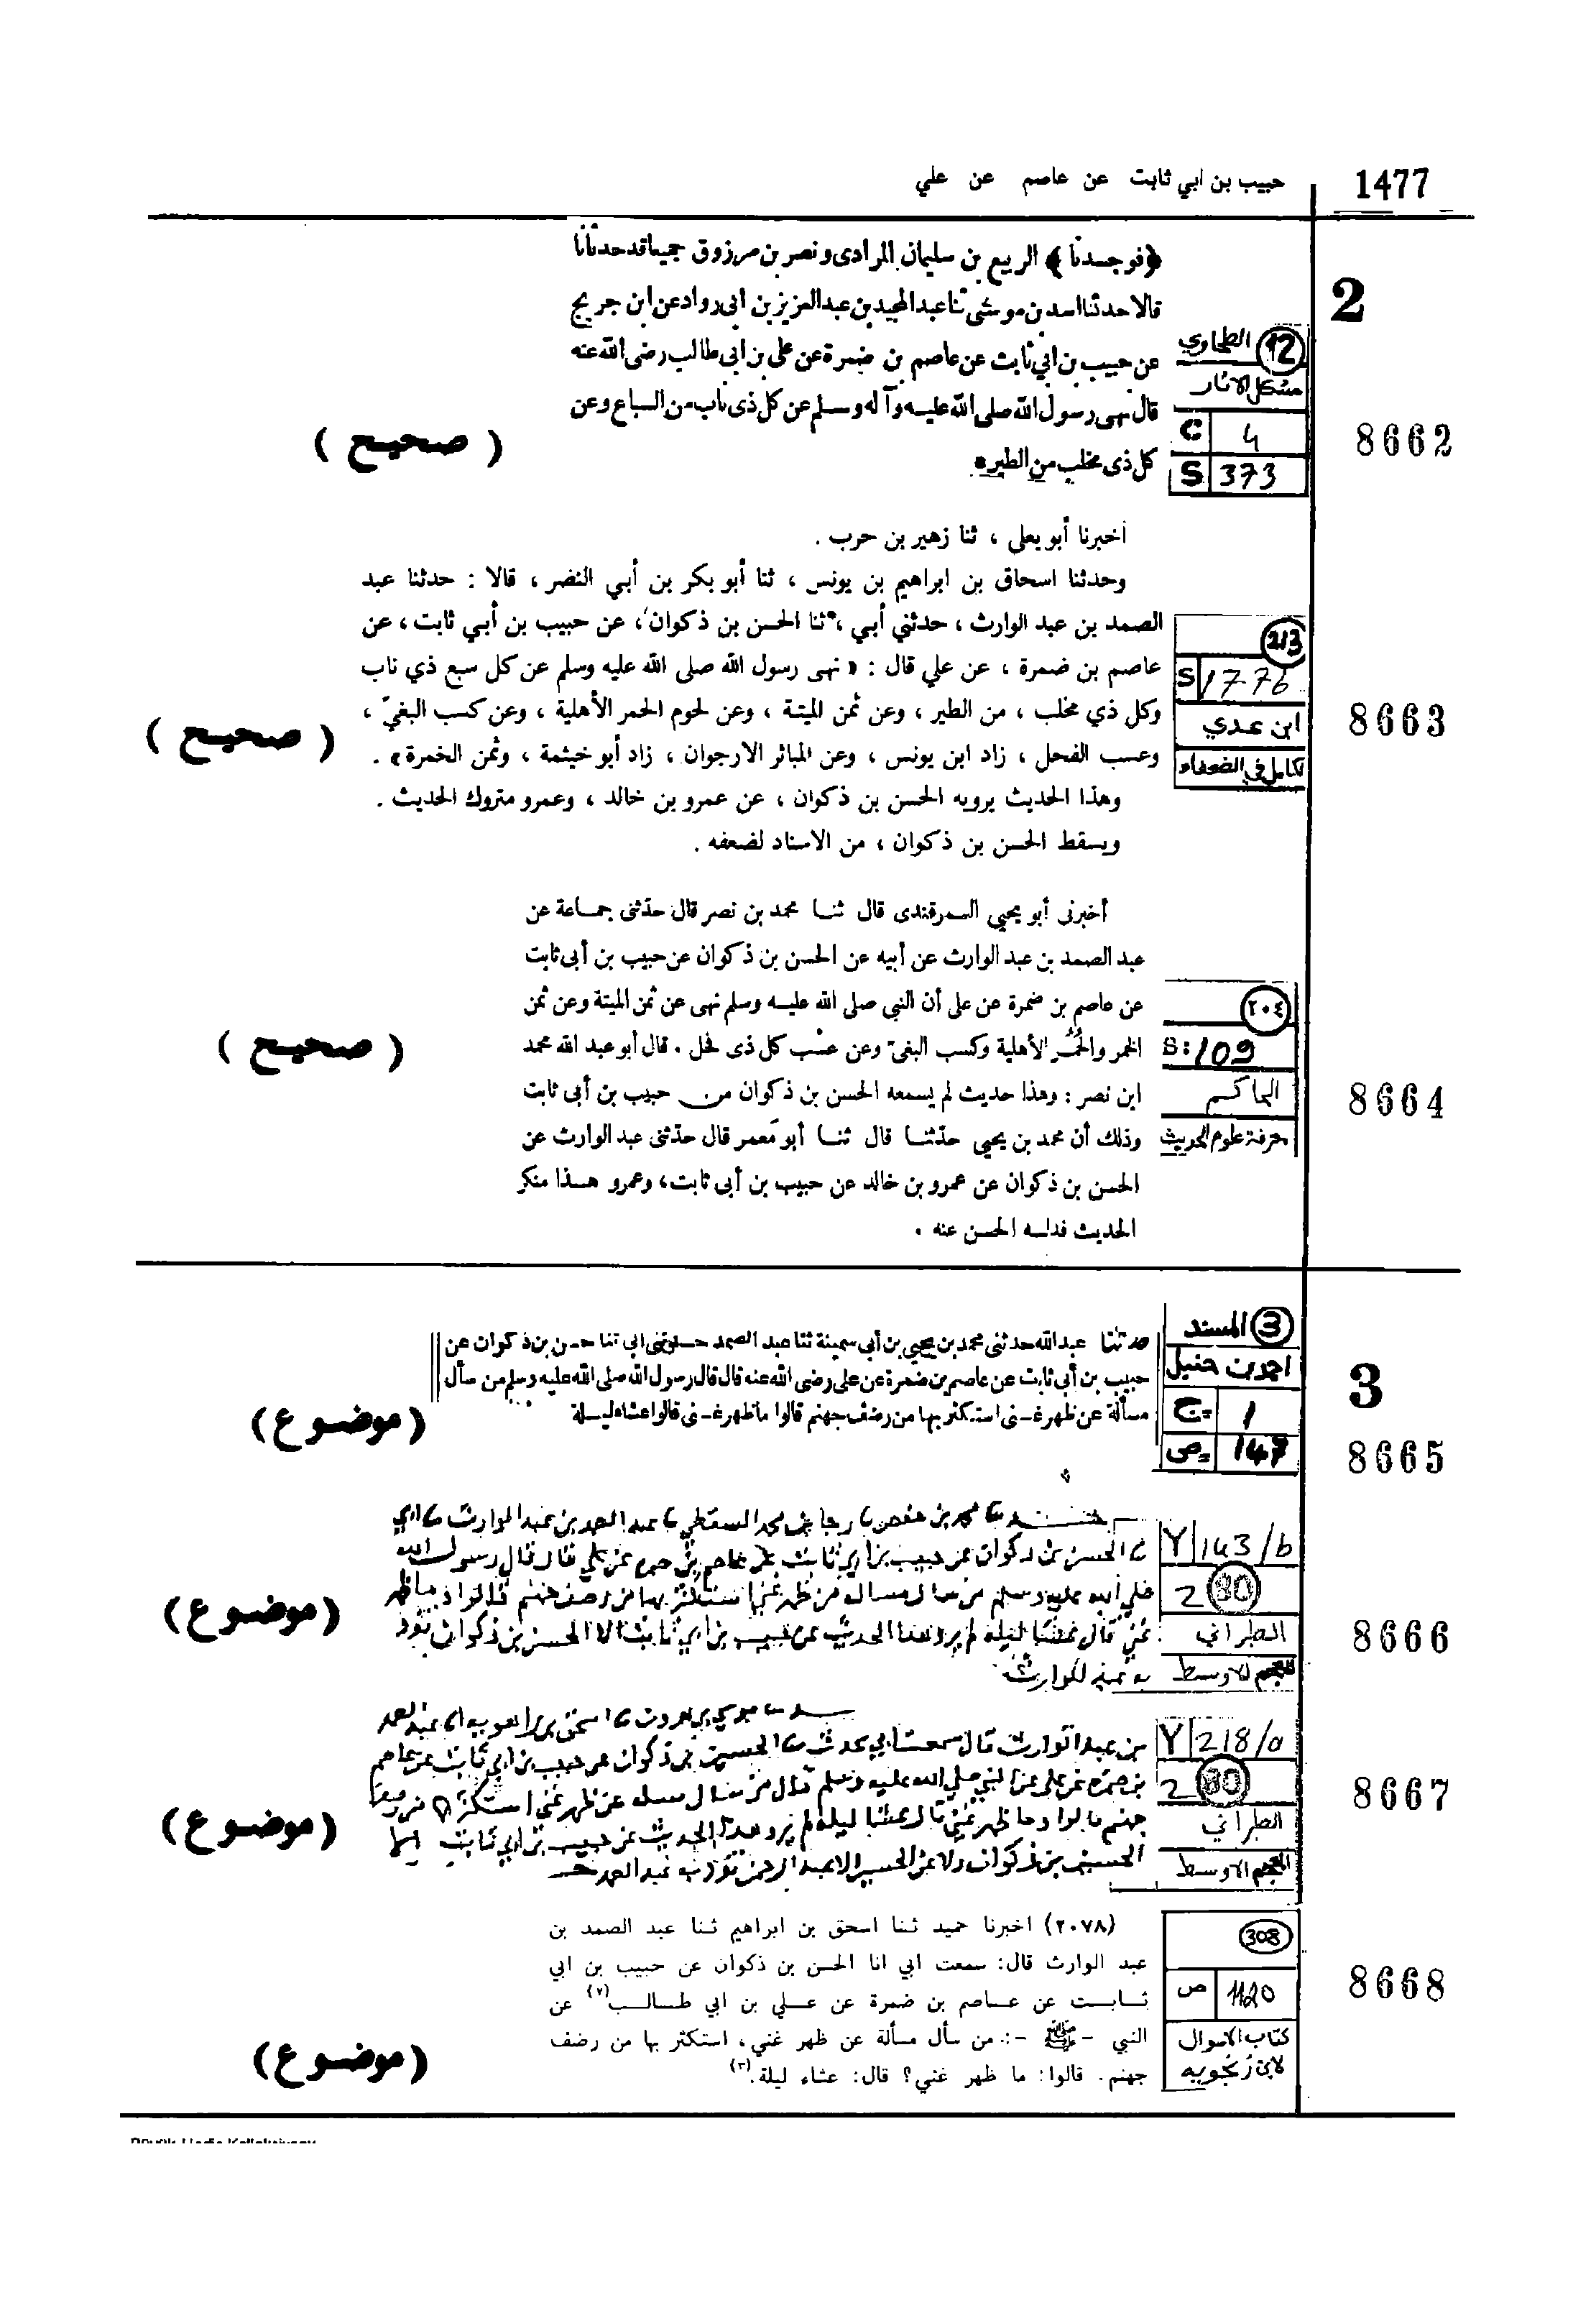 1477 حبيب بن ابي ثابت عن عاصم عن علي
2
﴿فوجدنا﴾ الربيع بن سليمان المرادى ونصر بن مرزوق جميعا قد حدثانا
قالا حدثنا اسد بن موسى ثنا عبد المجيد بن عبد العزيز بن ابى رواد عن ابن جريج
عن حبيب بن ابي ثابت عن عاصم بن ضمرة عن على بن ابى طالب رضى الله عنه
قال نهى رسول الله صلى الله عليه وآله وسلم عن كل ذى ناب من السباع وعن
كل ذى مخلب من الطير
12 الطحاوي
مشكل الاثار
C 4
S 373
8662
( صحيح )
أخبرنا أبو يعلى ، ثنا زهير بن حرب .
وحدثنا اسحاق بن ابراهيم بن يونس ، ثنا أبو بكر بن أبي النضر ، قالا : حدثنا عبد
الصمد بن عبد الوارث ، حدثني أبي ، ثنا الحسن بن ذكوان ، عن حبيب بن أبي ثابت ، عن
عاصم بن ضمرة ، عن علي قال : « نهى رسول الله صلى الله عليه وسلم عن كل سبع ذي ناب
وكل ذي مخلب ، من الطير ، وعن ثمن الميتة ، وعن لحوم الحمر الأهلية ، وعن كسب البغيّ ،
وعسب الفحل ، زاد ابن يونس ، وعن المباثر الارجوان ، زاد أبو خيثمة ، وثمن الخمرة » .
وهذا الحديث يرويه الحسن بن ذكوان ، عن عمرو بن خالد ، وعمرو متروك الحديث .
ويسقط الحسن بن ذكوان ، من الاسناد لضعفه .
213
S 1776
ابن عدي
الكامل في الضعفاء
8663
( صحيح )
أخبرنى أبو يحيي السمرقندى قال ثنا محمد بن نصر قال حدّثنى جماعة عن
عبد الصمد بن عبد الوارث عن أبيه عن الحسن بن ذكوان عن حبيب بن أبى ثابت
عن عاصم بن ضمرة عن على أن النبي صلى الله عليه وسلم نهى عن ثمن الميتة وعن ثمن
الخمر والحُمُر الأهلية وكسب البغىّ وعن عسْب كل ذى فحل . قال أبو عبد الله محمد
ابن نصر : وهذا حديث لم يسمعه الحسن بن ذكوان من حبيب بن أبى ثابت
وذلك أن محمد بن يحيي حدّثنا قال ثنا أبو مَعمر قال حدّثنى عبد الوارث عن
الحسن بن ذكوان عن عمرو بن خالد عن حبيب بن أبى ثابت، وعمرو هذا منكر
الحديث فدلسه الحسن عنه .
٢٠٤
S: 109
الحاكم
معرفة علوم الحديث
8664
( صحيح )
3
حدثنا عبدالله حدثنى محمد بن يحيي بن أبي سمينة ثنا عبد الصمد حدثنى ابى ثنا حسن بن ذكوان عن
حبيب بن أبى ثابت عن عاصم بن ضمرة عن على رضى الله عنه قال قال رسول الله صلى الله عليه وسلم من سأل
مسألة عن ظهر غـنى استكثر بها من رضف جهنم قالوا ما ظهر غـنى قالوا عشاء ليلة
3 المسند
احمد بن حنبل
ج 1
ص 147
8665
(موضوع)
محمد بن رجا بن محمد السقطي نا عبد الصمد بن عبد الوارث نا ابي
نا الحسن بن ذكوان عن حبيب بن ابي ثابت عن عاصم بن ضمره عن علي قال قال رسول الله
صلى الله عليه وسلم من سال مساله عن ظهر غني استكثر بها من رضف جهنم قالوا وما ظهر
غني قال عشا ليله لم يرو هذا الحديث عن حبيب بن ابي ثابت الا الحسن بن ذكوان تفرد
به عبد الوارث
Y 143/b
2 80
الطبراني
المعجم الاوسط
8666
(موضوع)
موسي بن هرون نا اسحق بن نا عبد الصمد
بن عبد الوارث قال سمعت ابي يحدث نا الحسين بن ذكوان عن حبيب بن ابي ثابت عن عاصم
بن ضمره عن علي عن النبي صلي الله عليه وسلم قال من سال مساله عن ظهر غني استكثر من رضف
جهنم قالوا وما ظهر غني قال عشا ليله لم يرو هذا الحديث عن حبيب بن ابي ثابت الا
الحسين بن ذكوان ولا عن الحسين الا تفرد به عبد الصمد
Y 218/a
2 80
الطبراني
المعجم الاوسط
8667
(موضوع)
(٢٠٧٨) اخبرنا حميد ثنا اسحق بن ابراهيم ثنا عبد الصمد بن
عبد الوارث قال: سمعت ابي انا الحسن بن ذكوان عن حبيب بن ابي
ثابت عن عاصم بن ضمرة عن علي بن ابي طالب(٧) عن
النبي - ﷺ -: من سأل مسألة عن ظهر غني، استكثر بها من رضف
جهنم. قالوا: ما ظهر غني؟ قال: عشاء ليلة.(٣)
308
ص 1120
كتاب الاموال
لابن زنجويه
8668
(موضوع)